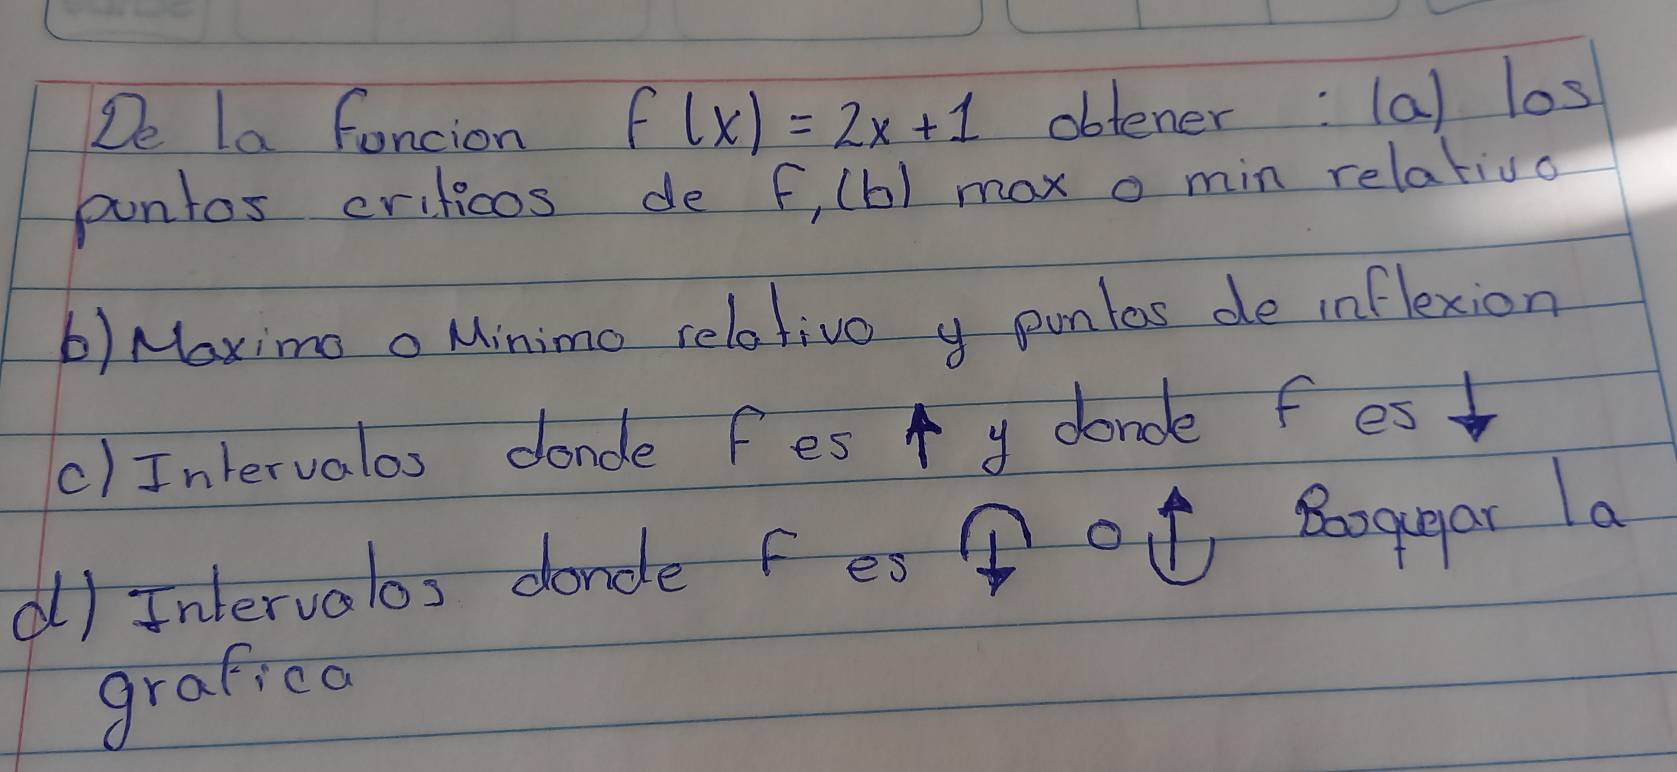 De la funcion f(x) = 2x + 1 obtener : (a) los
puntos criticos de f, (b) max o min relativo
b) Maximo o Minimo relativo y puntos de inflexion
c) Intervalos donde f es ↑ y donde f es ↓
d) Intervalos donde f es ∩↓ o ↑∪ Bosquejar la
grafica